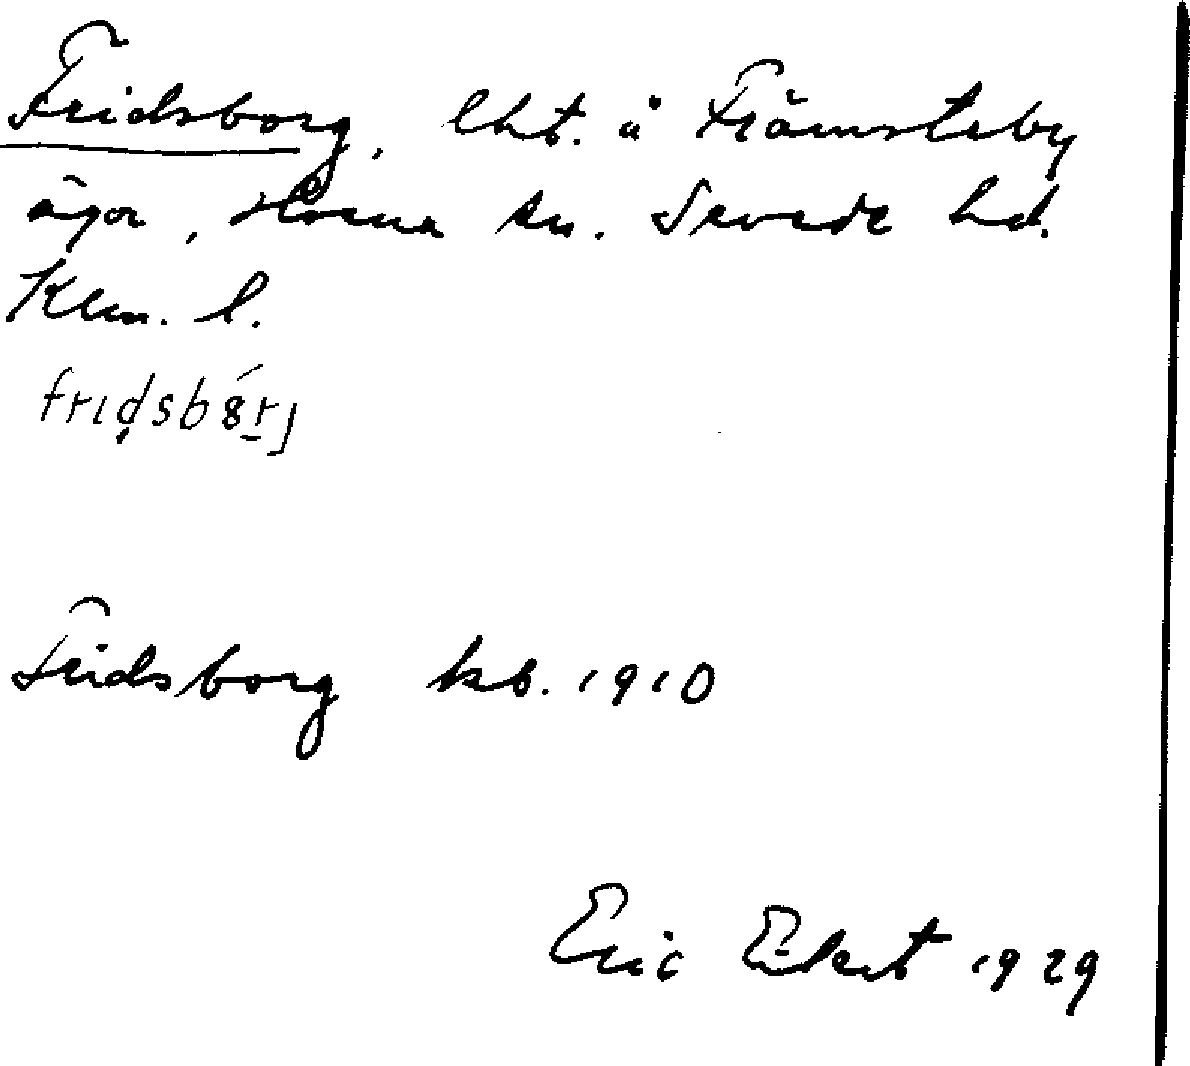 Fridsborg, lht. å Främsteby
ägor, Horna sn. Sevede hd.
Klm. l.
fridsbórj
Fridsborg kb. 1910
Eric Elert 1929